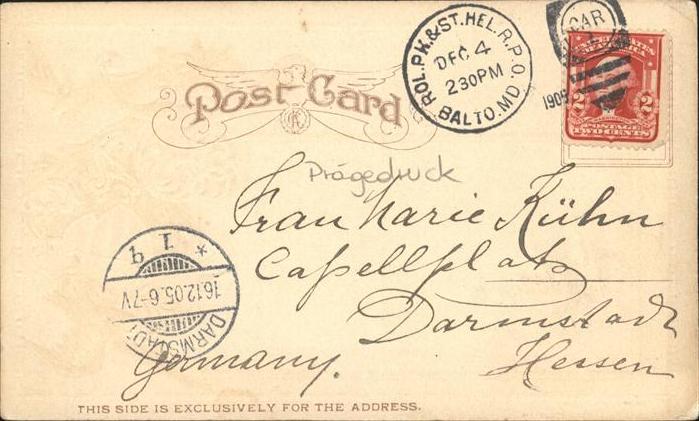 Post Card
ROL.PK.&ST.HEL.R.P.O.
DEC 4
2 30PM
BALTO.MD.
CAR
1905
UNITED STATES
OF AMERICA
2 2
POSTAGE
TWO CENTS
Prägedruck
Frau Marie Kühn
Capellplatz
Darmstadt
Hessen
Germany.
DARMSTADT
16.12.05.6-7V
* 1 b
THIS SIDE IS EXCLUSIVELY FOR THE ADDRESS.